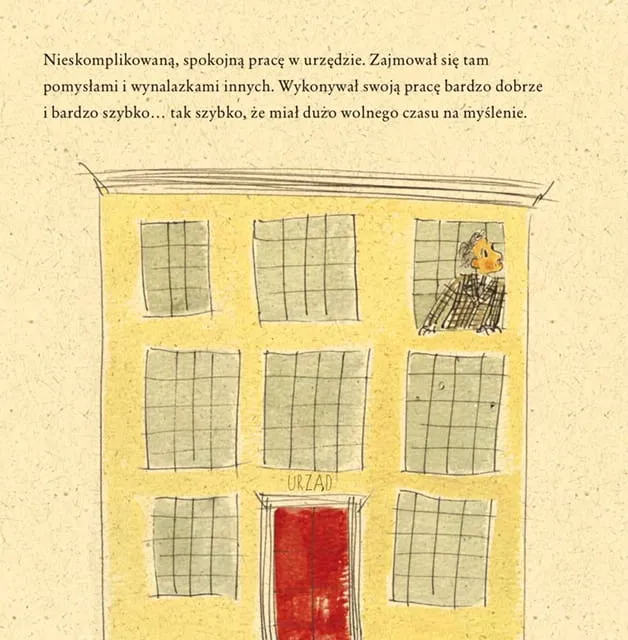 Nieskomplikowaną, spokojną pracę w urzędzie. Zajmował się tam
pomysłami i wynalazkami innych. Wykonywał swoją pracę bardzo dobrze
i bardzo szybko… tak szybko, że miał dużo wolnego czasu na myślenie.
URZĄD